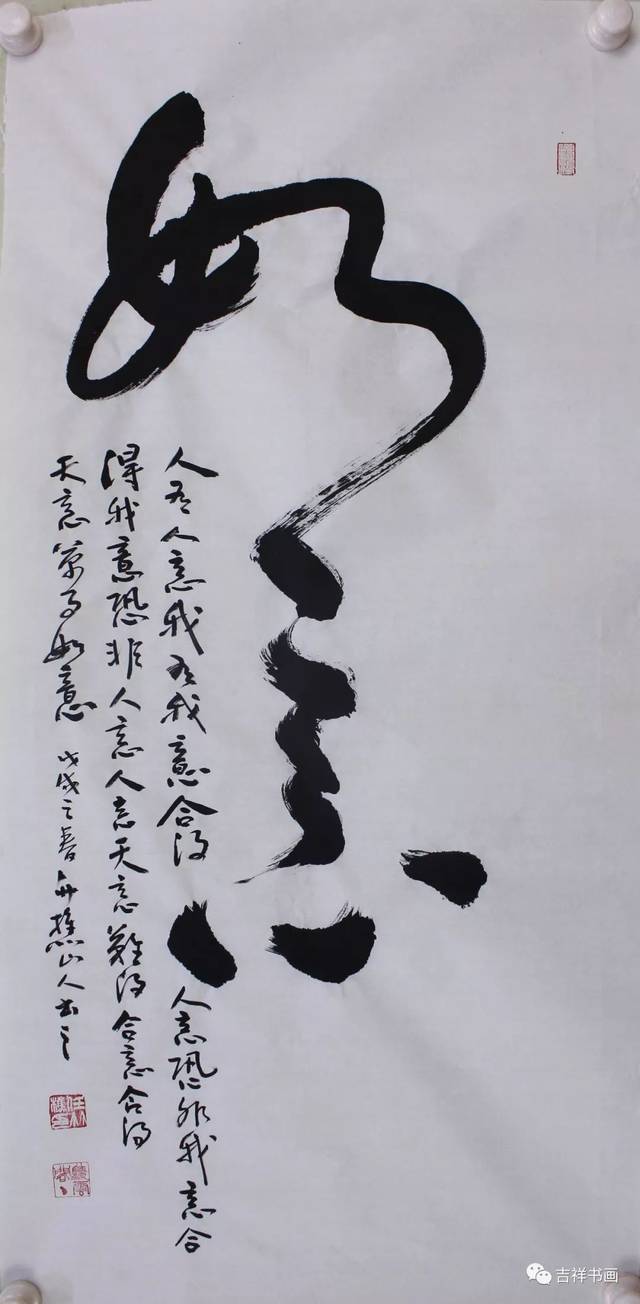 如意
人有人意我有我意合得人意恐非我意合
得我意恐非人意人意天意難得合意合得
天意萬事如意 戊戌之春 竹樵山人书之
吉祥书画